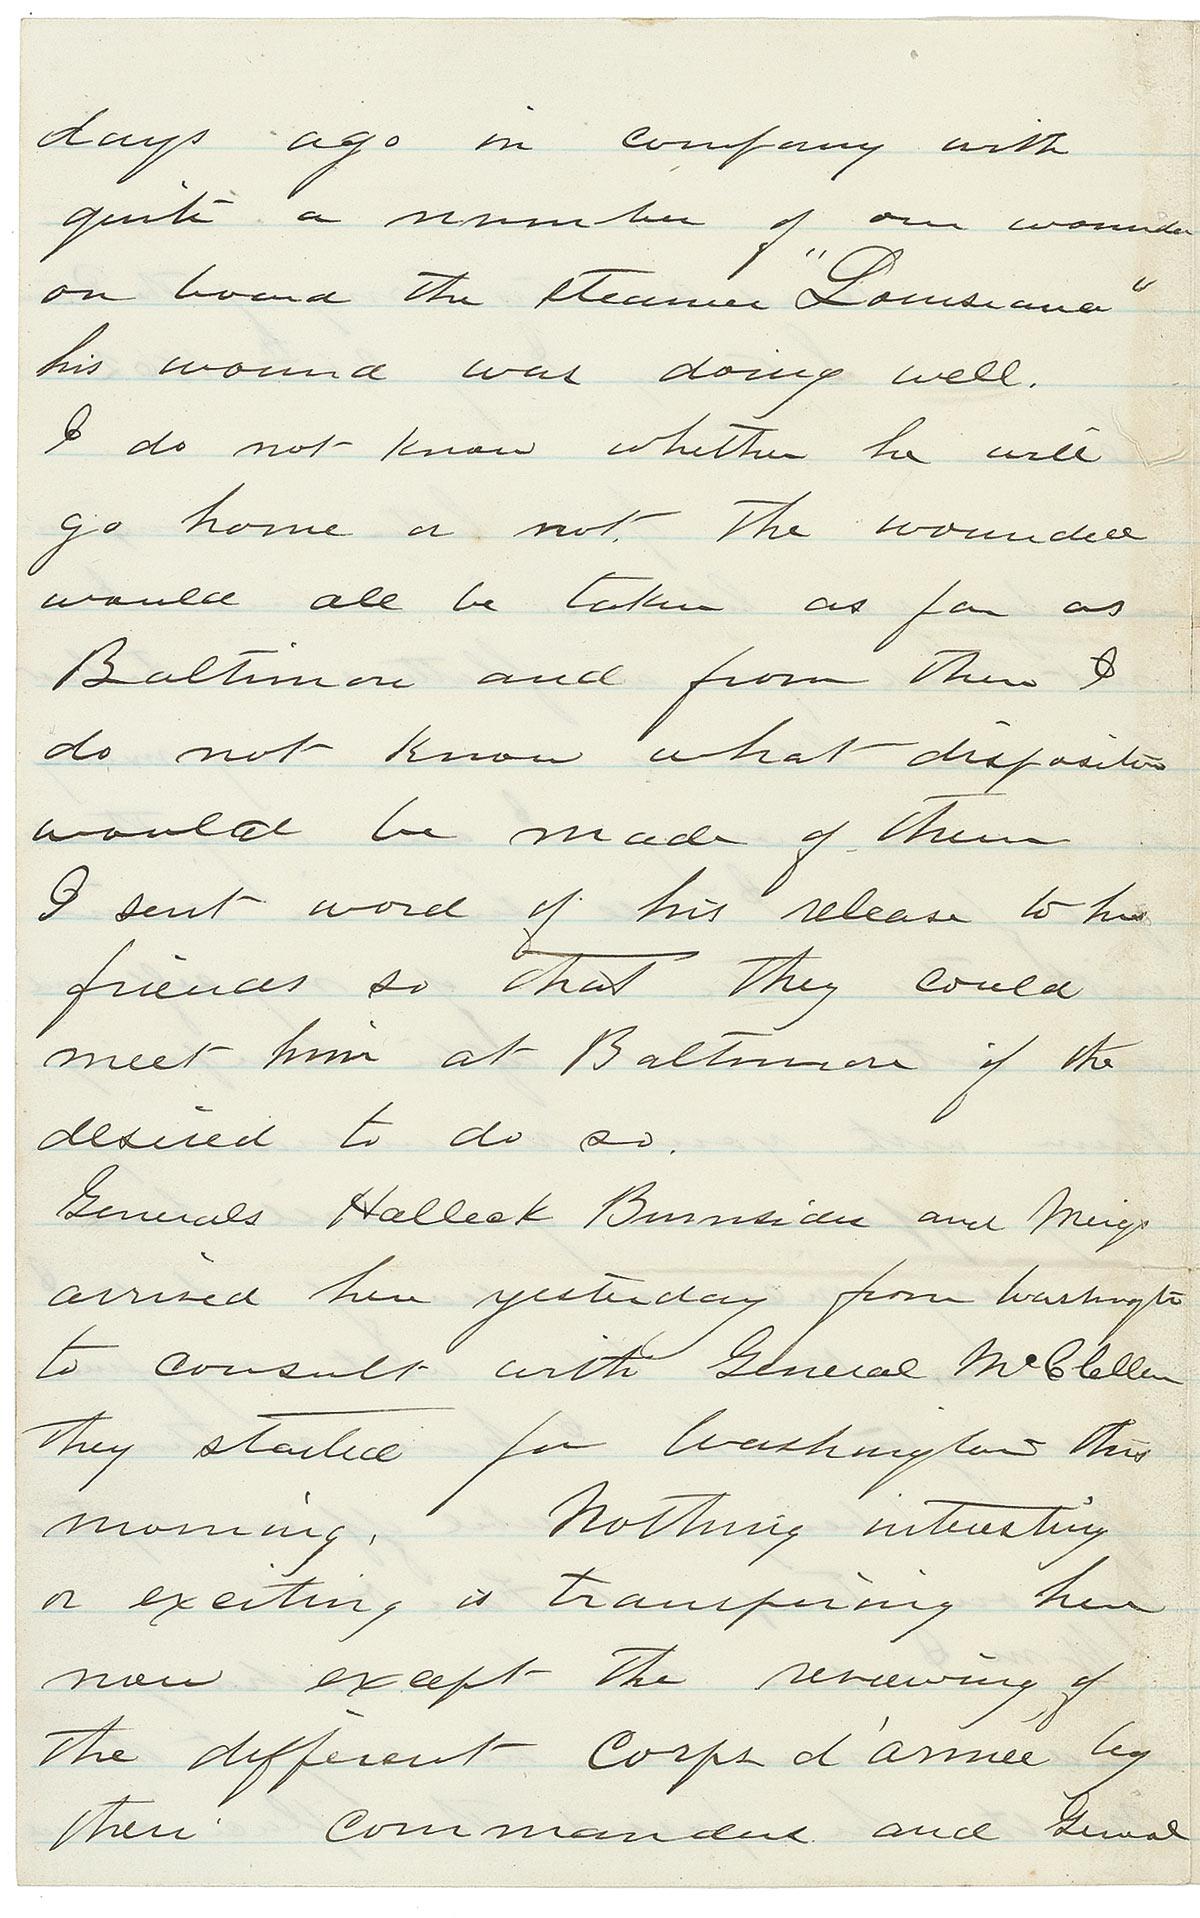 days ago in company with
quite a number of our wounded
on board the steamer "Louisiana"
his wound was doing well.
I do not know whether he will
go home or not. The wounded
would all be taken as far as
Baltimore and from there I
do not know what disposition
would be made of them
I sent word of his release to his
friends so that they could
meet him at Baltimore if the
desired to do so.
Generals Halleck Burnside and Meigs
arrived here yesterday from Washington
to consult with General McClellan
they started for Washington this
morning. Nothing interesting
or exciting is transpiring here
now except the reviewing of
the different Corps d'armee by
their commanders and General